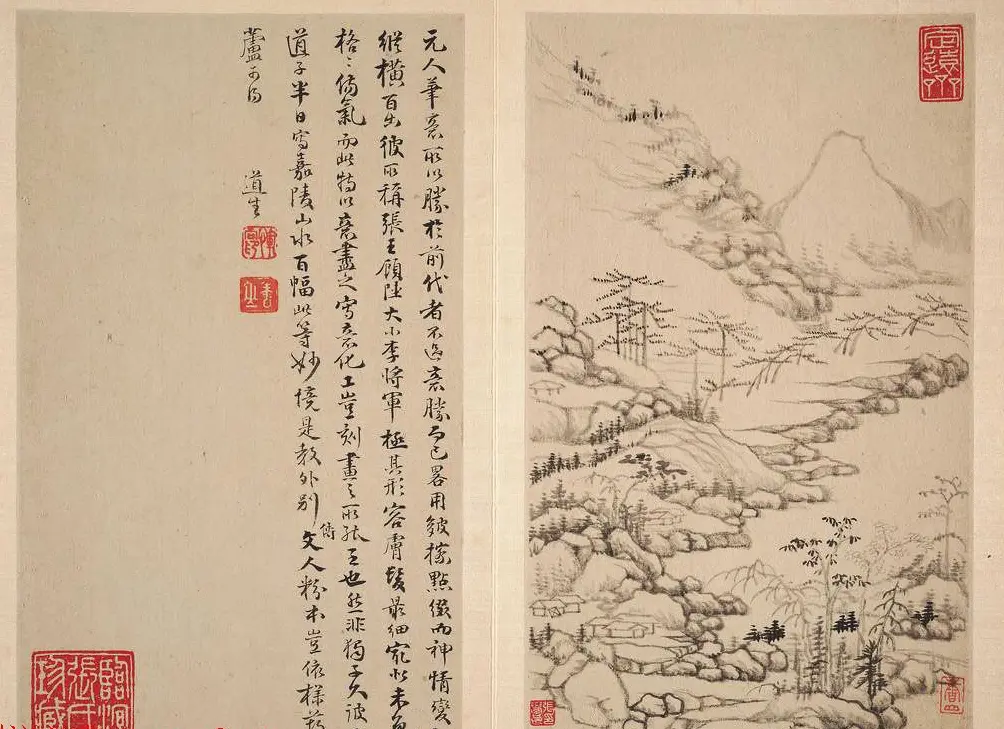 元人筆意所以勝於前代者不過意勝而已略用皴擦點綴而神情變
縱橫百出彼所稱張王顧陸大小李將軍極其形容膚髮最細究非未免
格格傷氣而此特以意盡之寫意化工豈刻畫之所能至也然非獨子久
道子半日寫嘉陵山水百幅此等妙境是教外別傳文人粉本豈依樣葫
蘆可得
道生